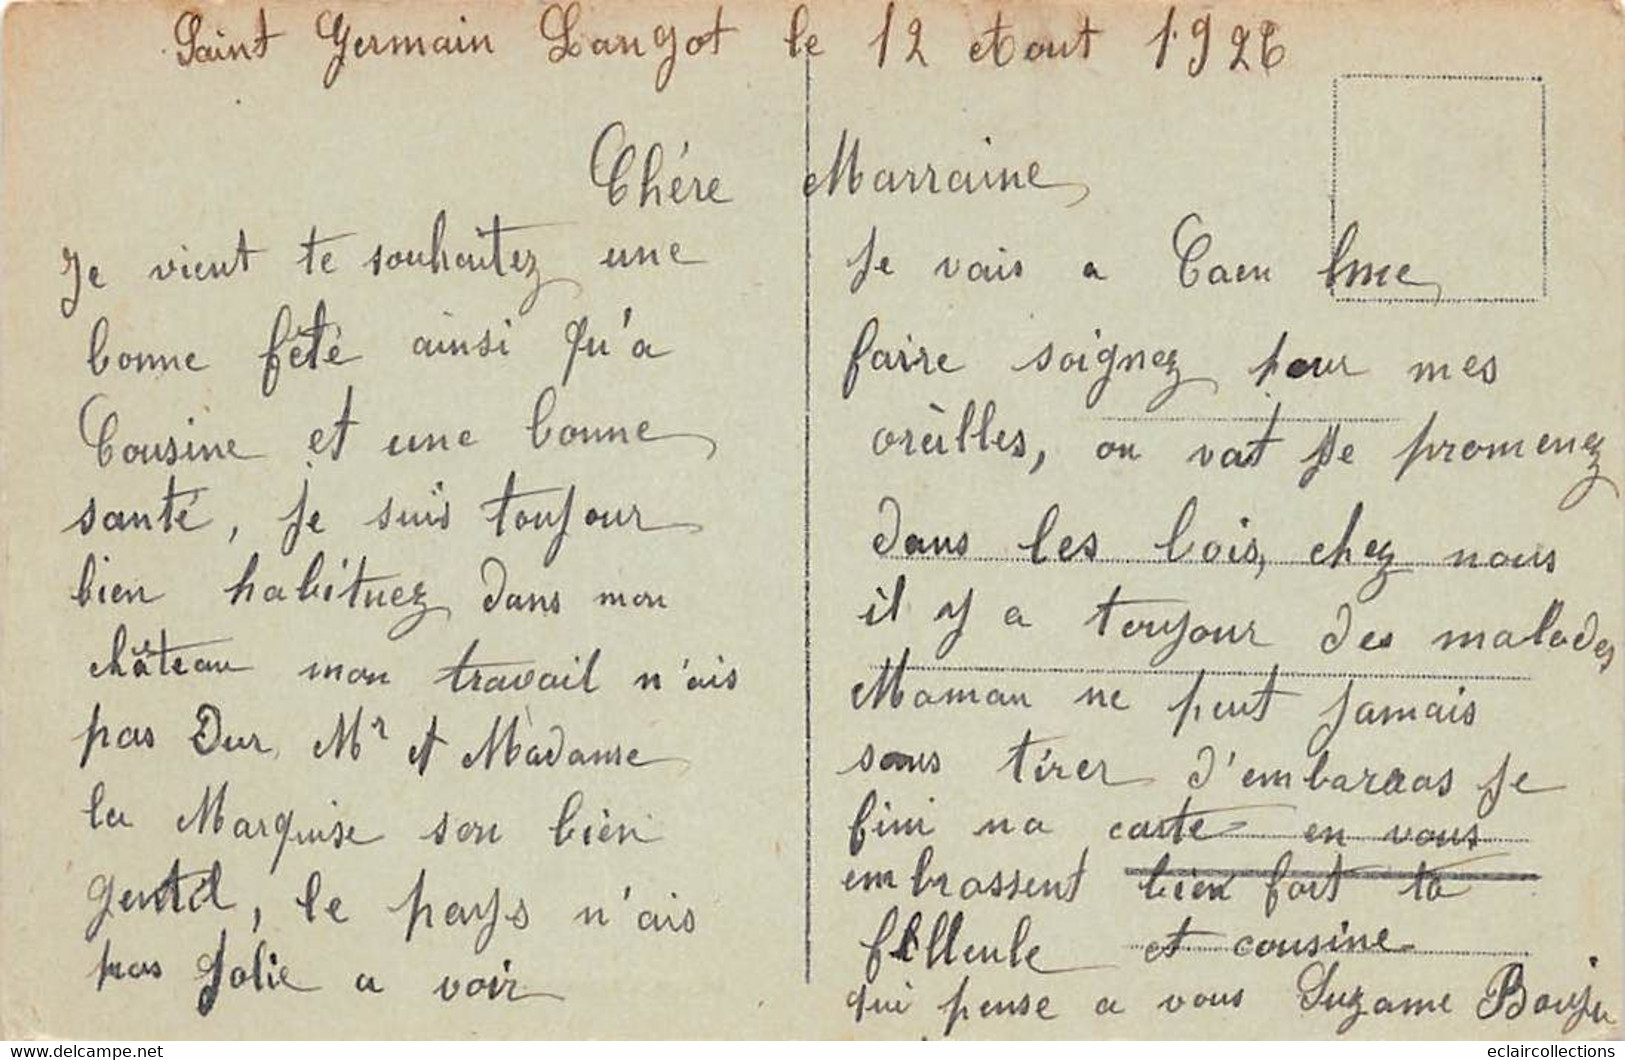 Saint Germain Langot le 12 Aout 1926
Chére Marraine
Je vient te souhaitez une
bonne fété ainsi qu'a
Cousine et une bonne
santé, je suis toujour
bien habituez dans mon
château mon travail n'ais
pas Dur Mr et Madame
la Marquise son bien
gentil, le pays n'ais
pas jolie a voir
Je vais a Caen
faire soignez pour mes
oreilles, on vat se promenez
dans les bois, chez nous
il y a toujour des malades
Maman ne peut jamais
sans tirer d'embarras je
fini na carte en vous
embrassent bien fort ta
filleule et cousine
qui pense a vous Suzame Bouju
eclaircollections